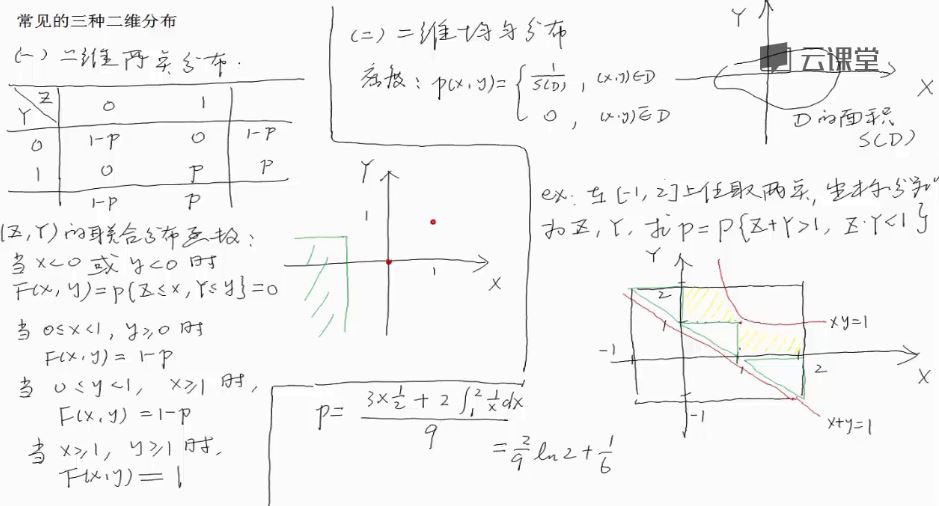 常见的三种二维分布
(一) 二维两点分布.
X 0 1
Y
0 1-p 0 1-p
1 0 p p
1-p p
(X,Y)的联合分布函数:
当 x<0 或 y<0 时
F(x,y)=P{X≤x,Y≤y}=0
当 0≤x<1, y≥0 时
F(x,y)=1-p
当 0≤y<1, x≥1 时,
F(x,y)=1-p
当 x≥1, y≥1 时,
F(x,y)=1
(二) 二维均匀分布
密度: p(x,y)={ 1/S(D), (x,y)∈D
0, (x,y)∈̄D
Y
X
云课堂
D的面积
S(D)
Y
1
1
X
ex: 在[-1,2]上任取两点,坐标分别
为X,Y,求p=P{X+Y>1, X·Y<1}
Y
2
1
-1
1
2
X
-1
xy=1
x+y=1
p= (3×1/2 + 2∫₁² 1/x dx)/9
= 2/9 ln2 + 1/6